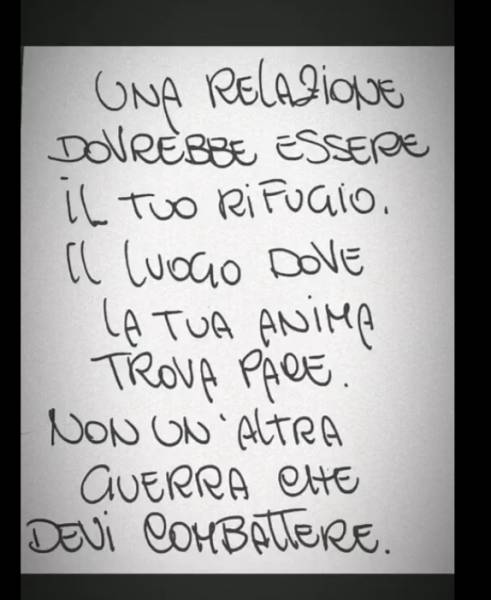 UNA RELAZIONE
DOVREBBE ESSERE
IL TUO RIFUGIO.
IL LUOGO DOVE
LA TUA ANIMA
TROVA PACE.
NON UN'ALTRA
GUERRA CHE
DEVI COMBATTERE.